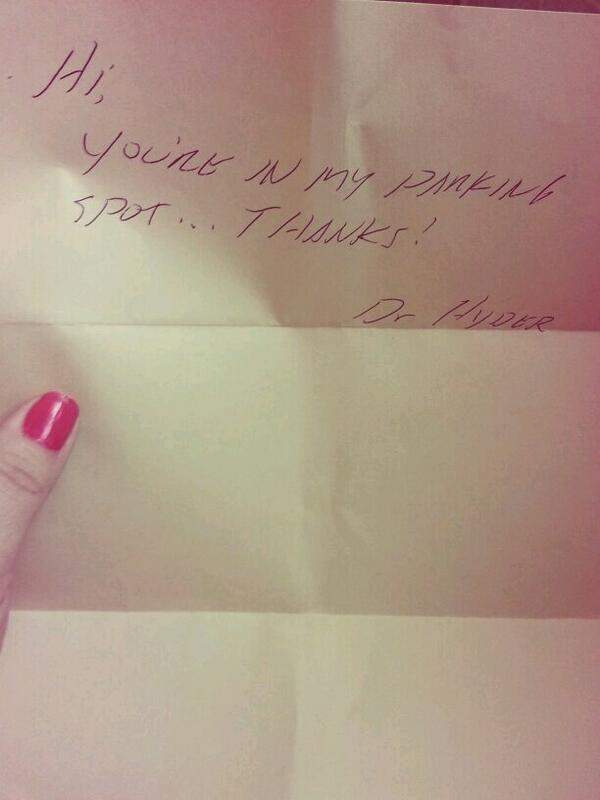 Hi,
YOU'RE IN MY PARKING
SPOT... THANKS!
Dr HYDER